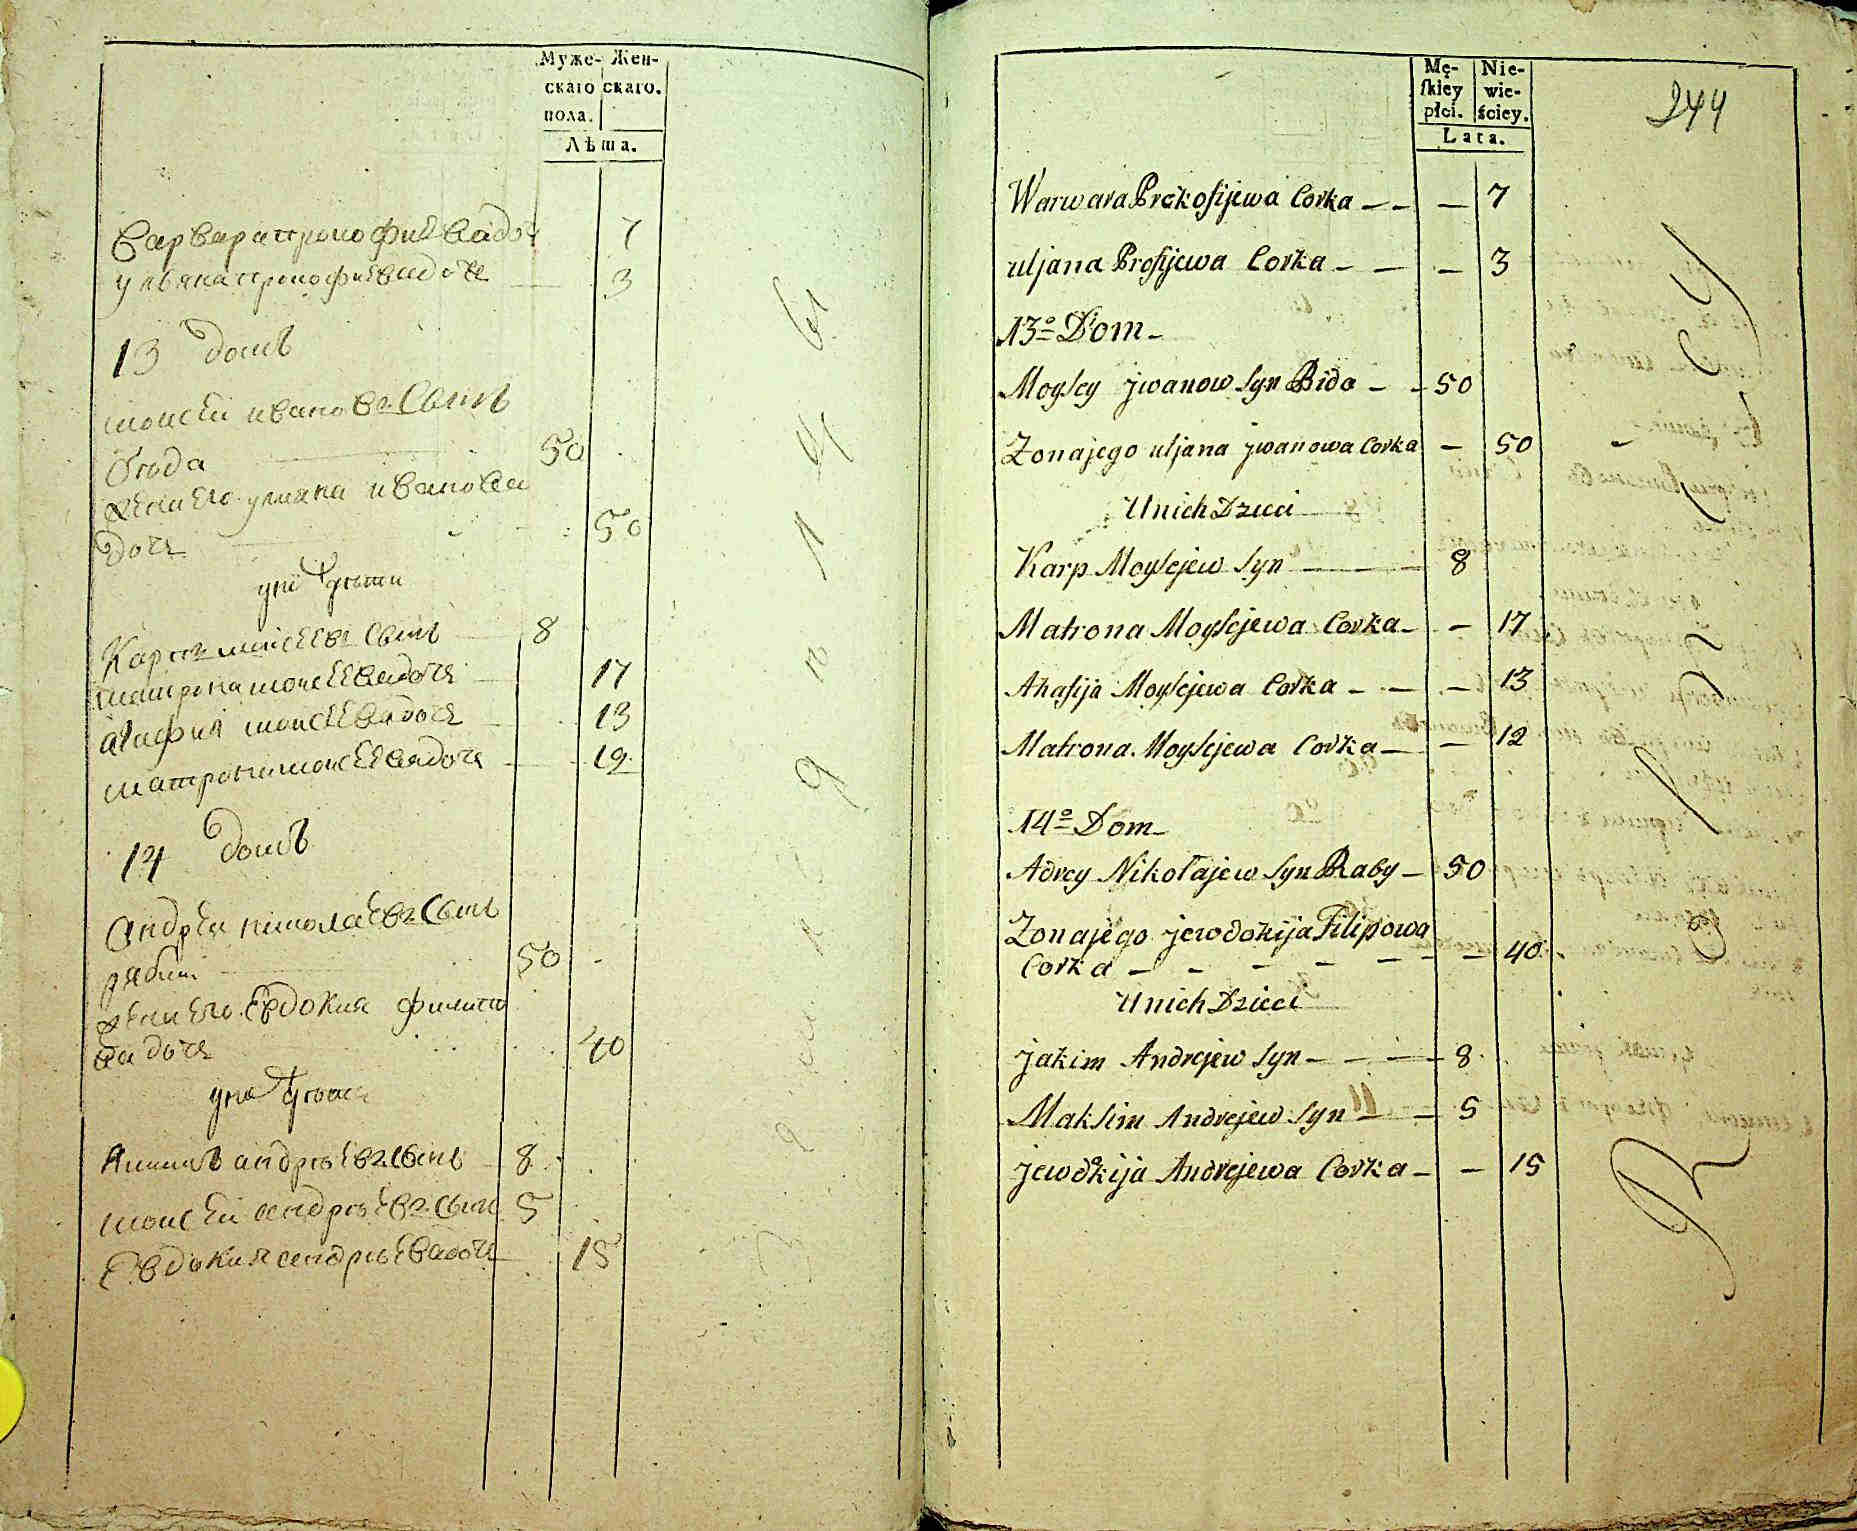 Муже- Жен-
скаго скаго.
пола.
Лѣта.
Варвара прокофиева доч 7
ульяна прокофиева доче 3
13 домъ
моисеи ивановъ сынъ
бѣда 50
жена его ульяна иванова
доче 50
у не дѣти
Карпъ моисеевъ сынъ 8
матрона моисеева доче 17
агафия моисеева доче 13
матрона моисеева доче 12
14 домъ
Андреи николаевъ сынъ
рябии 50
жена его Евдокия филипо
ва доче 40
у не дѣти
Якимъ андрѣевъ сынъ 8
моисеи андрѣевъ сынъ 5
Евдокия андрѣева доче 15
Mę- Nie-
ſkiey wie-
płci. ściey.
Lata.
244
Warwara Prokofijewa Corka — — — 7
uljana Profijewa Corka — — — 3
13º Dom —
Moyſey jwanow ſyn Bida — — 50
Zona jego uljana jwanowa Corka — 50
U nich Dzieci
Karp Moyſejew ſyn — — — 8
Matrona Moyſejewa Corka — — 17
Ahafija Moyſejewa Corka — — — 13
Matrona Moyſejewa Corka — — 12
14º Dom —
Adrey Nikołajew ſyn Raby — 50
Zona jego jewdokija Filipowa
Corka — — — — — — — 40
U nich Dzieci
jakim Andrejew ſyn — — — 8
Makſim Andrejew ſyn — — 5
jewdokija Andrejewa Corka — — 15